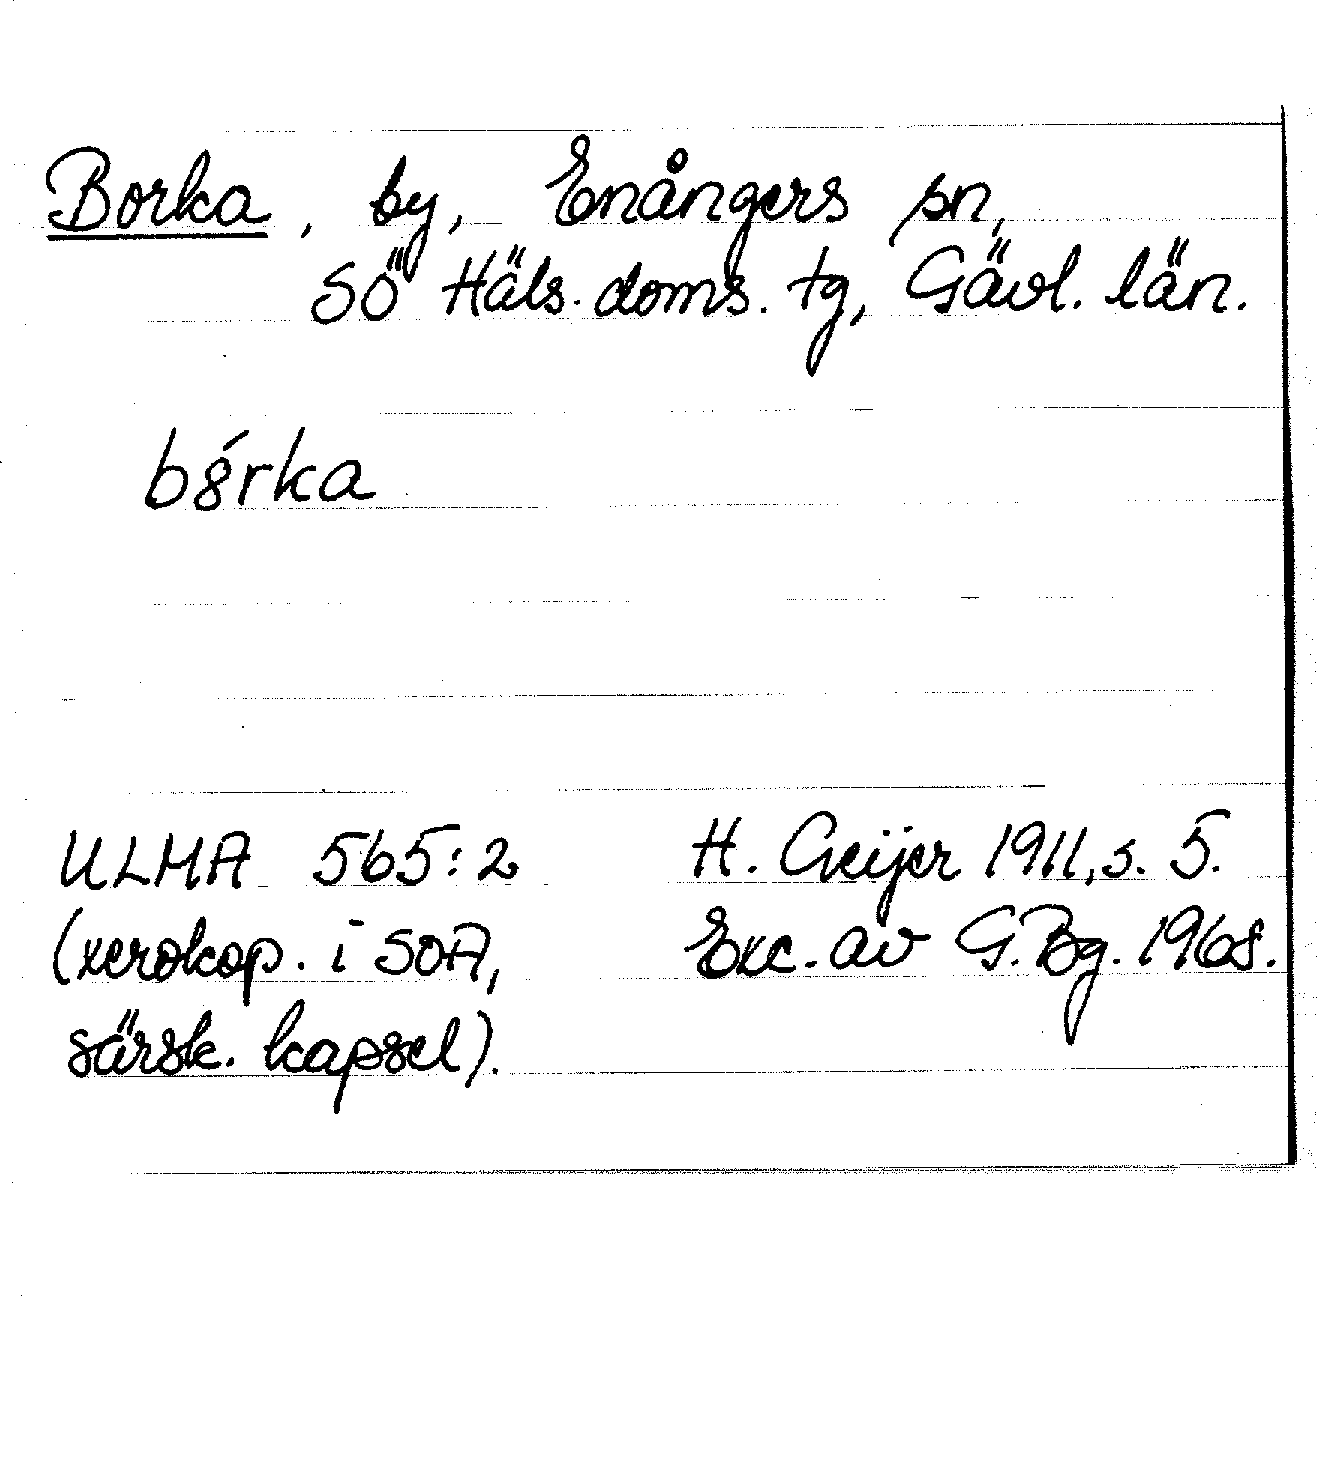 Borka, by, Enångers sn,
SÖ Häls. doms. tg, Gävl. län.
bǿrka
ULMA 565:2 H. Geijer 1911, s. 5.
(xerokop. i SOA, Exc. av G.Bg. 1968.
särsk. kapsel).